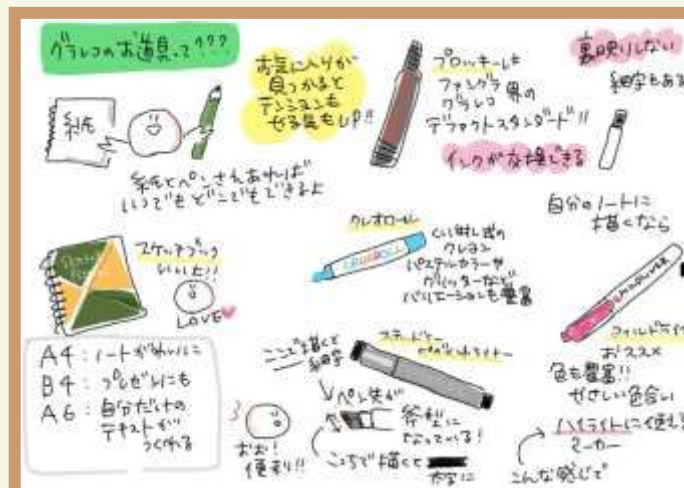 グラレコのお道具って???
紙
紙とペンさえあれば
いつでもどこでもできるよ
お気に入りが
見つかると
テンションも
やる気もUP!!
プロッキーは
ファングラ
グラレコ 界の
デファクトスタンダード!!
インクが交換できる
裏映りしない
細字もある
スケッチブック
いいよ!!
LOVE
A4:ノートがわりに
B4:プレゼンにも
A6:自分だけの
テキストが
つくれる
クレオロール
くり出し式の
クレヨン
パステルカラーや
グリッターなど
バリエーションも豊富
自分のノートに
描くなら
おススメ
色も豊富!!
やさしい色合い
ハイライトに使える
マーカー
こんな感じで
ここで描くと
細字
ペン先が
斧型に
なっている!
こっちで描くと
太字に
おお!
便利!!